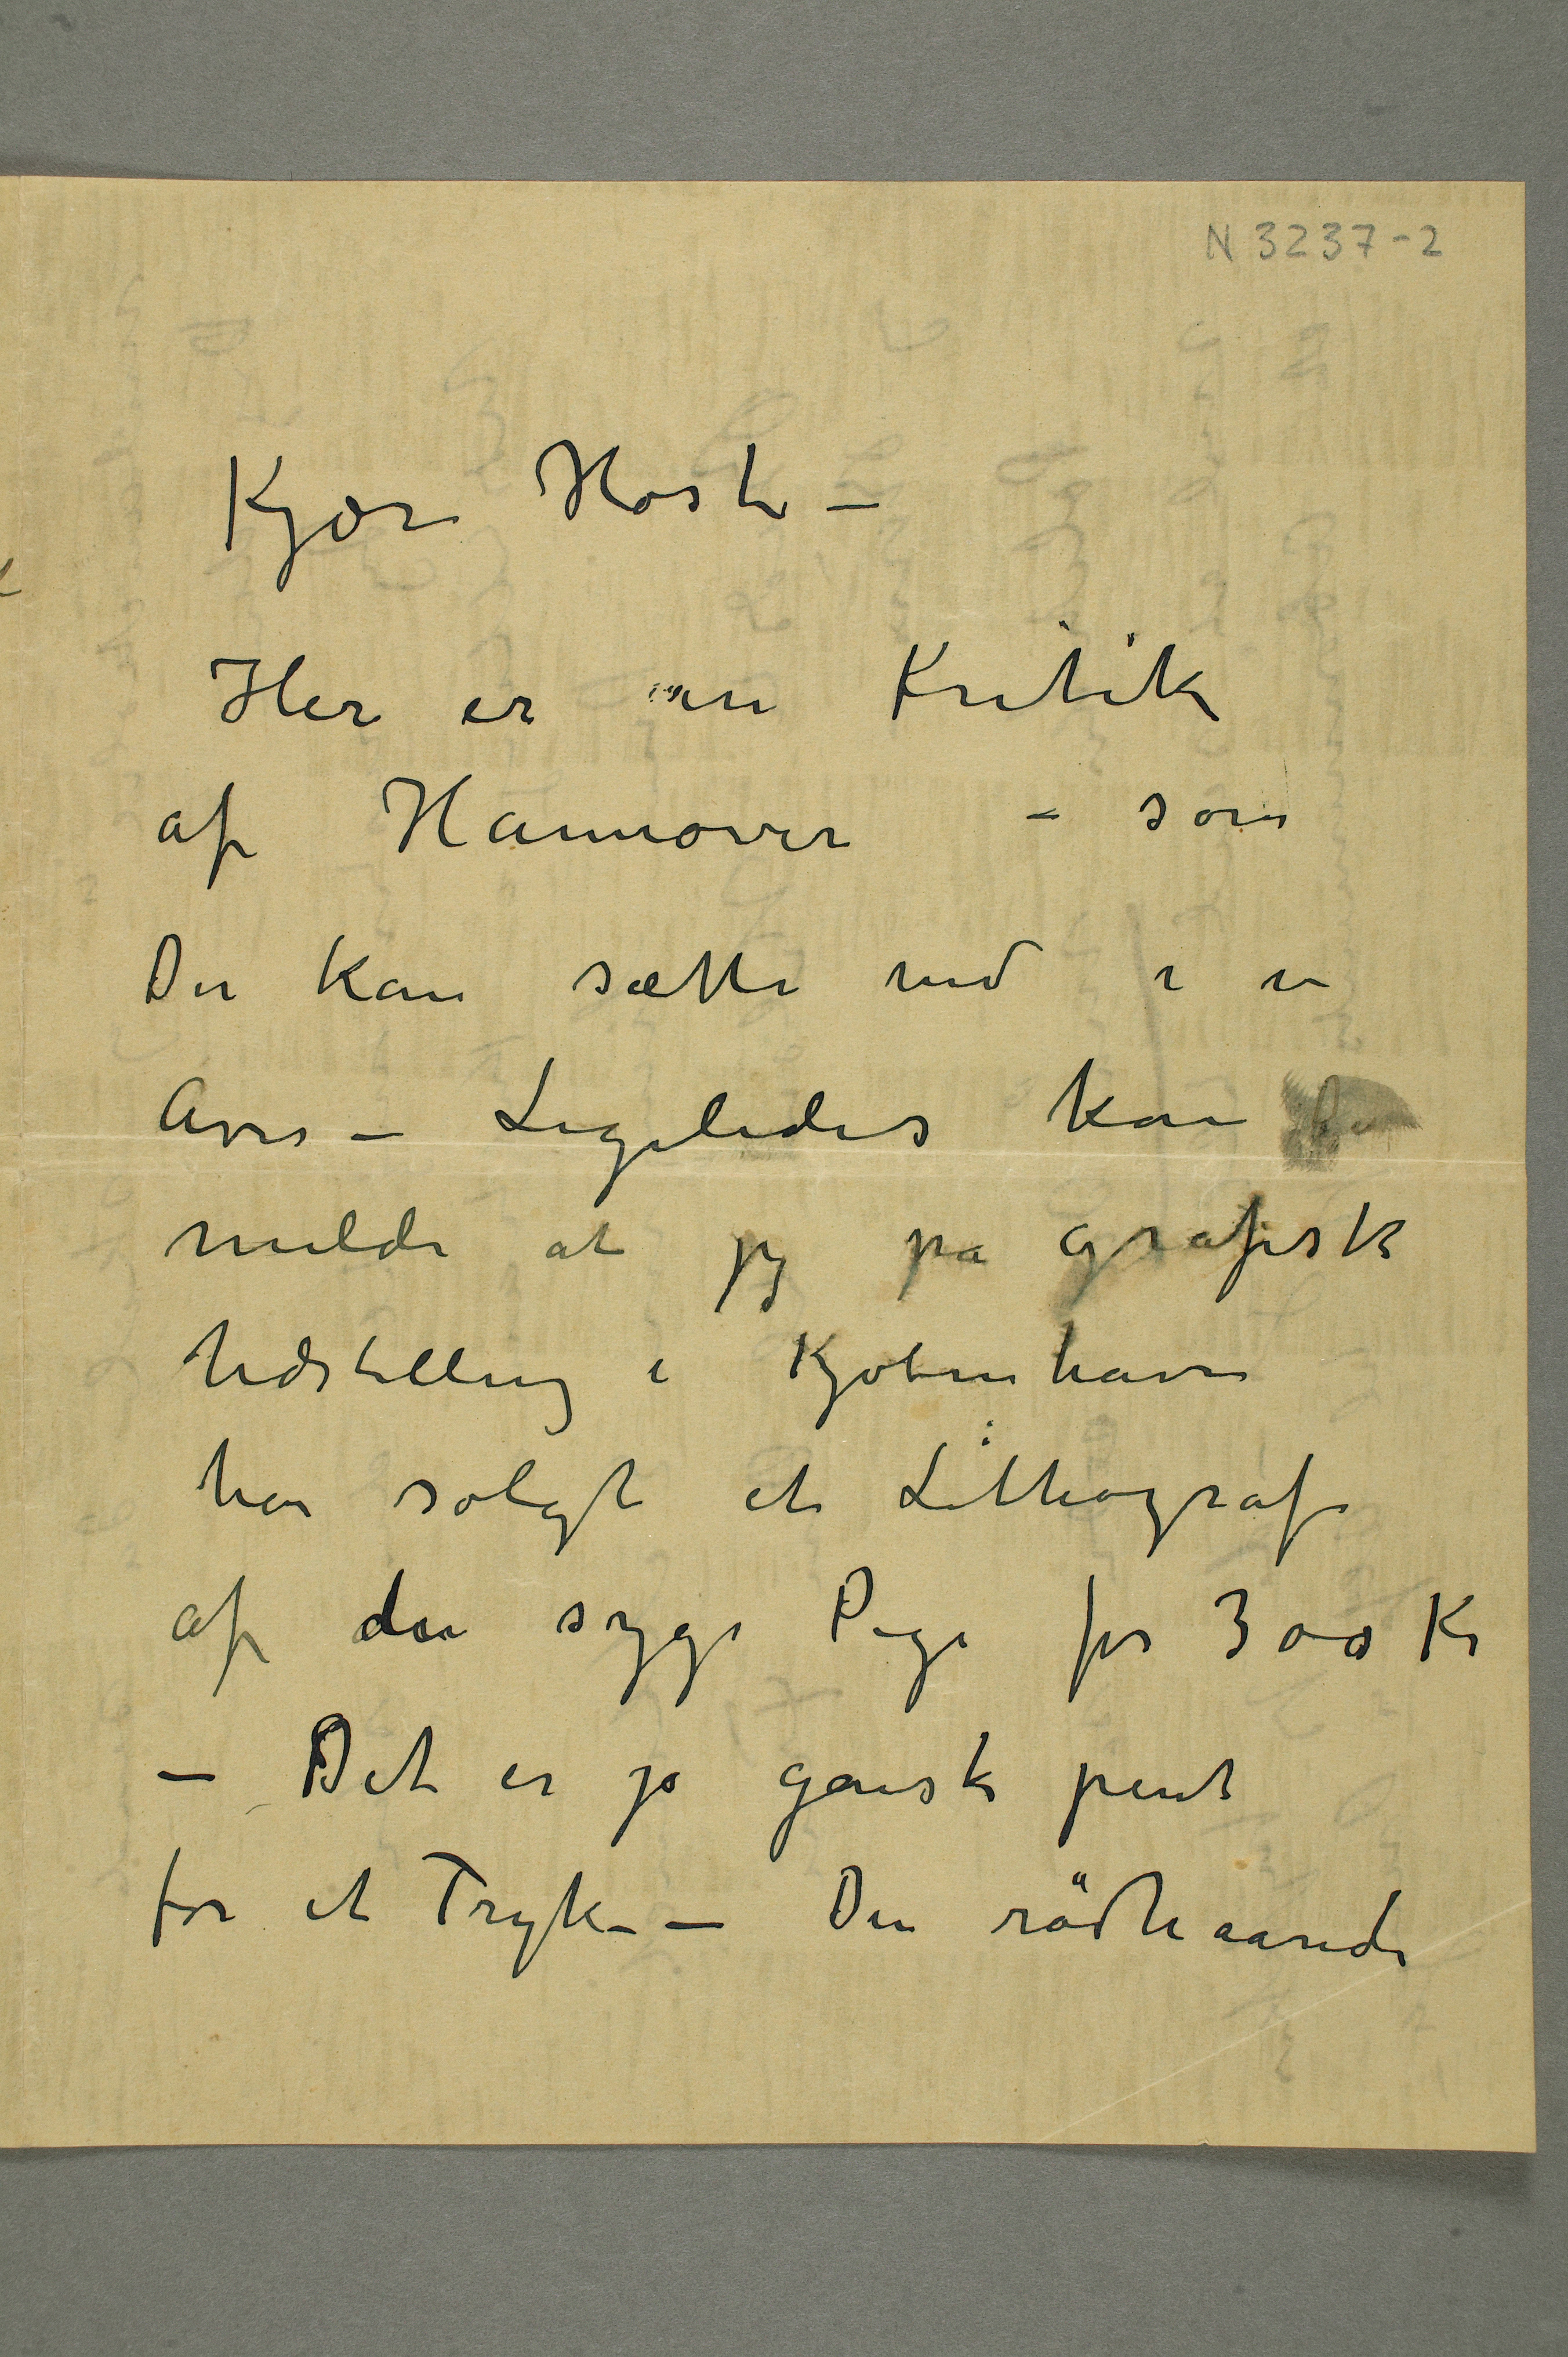 N 3237-2
Kjære Høst –
Her er en Kritik
af Hannover – som
De kan sætte ind i en
Avis – Ligeledes kan
melde at jeg på grafisk
Udstilling i Kjøbenhavn
har solgt et Lithografi
af den syge Pige for 300 Kr
– Det er jo ganske pent
for et Tryk – – Den rödhaarede